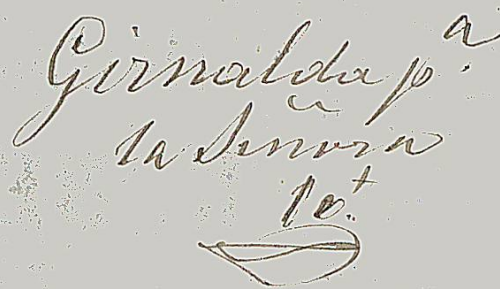 Girnalda p.ª
la Señora